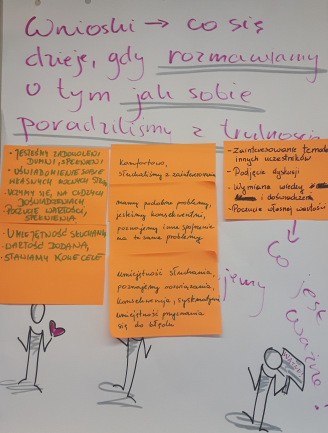 Wnioski → co się
dzieje, gdy rozmawiamy
o tym jak sobie
poradziliśmy z trudnością
• JESTEŚMY ZADOWOLENI
DUMNI, SPEŁNIENI
• UŚWIADOMIENIE SOBIE
WŁASNYCH MOCNYCH STRON
UCZYMY SIĘ, NA CUDZYCH
DOŚWIADCZENIACH,
POCZUCIE WARTOŚCI,
SPEŁNIENIA
• UMIEJĘTNOŚĆ SŁUCHANIA
WARTOŚĆ DODANA,
• STAWIAMY KONE CELE
Komfortowo,
słuchaliśmy z zainteresowaniem
mamy podobne problemy,
jesteśmy konsekwentni,
poznajemy inne spojrzenie
na te same problemy.
umiejętność słuchania,
poznajemy rozwiązania,
konsekwencja, systematyczność
umiejętność przyznania
się do błędu
- Zainteresowanie tematem
innych uczestników
- Podjęcie dyskusji
- Wymiana wiedzy
i doświadczeń
- Poczucie własnej wartości
Co jest
ważne?
jemy